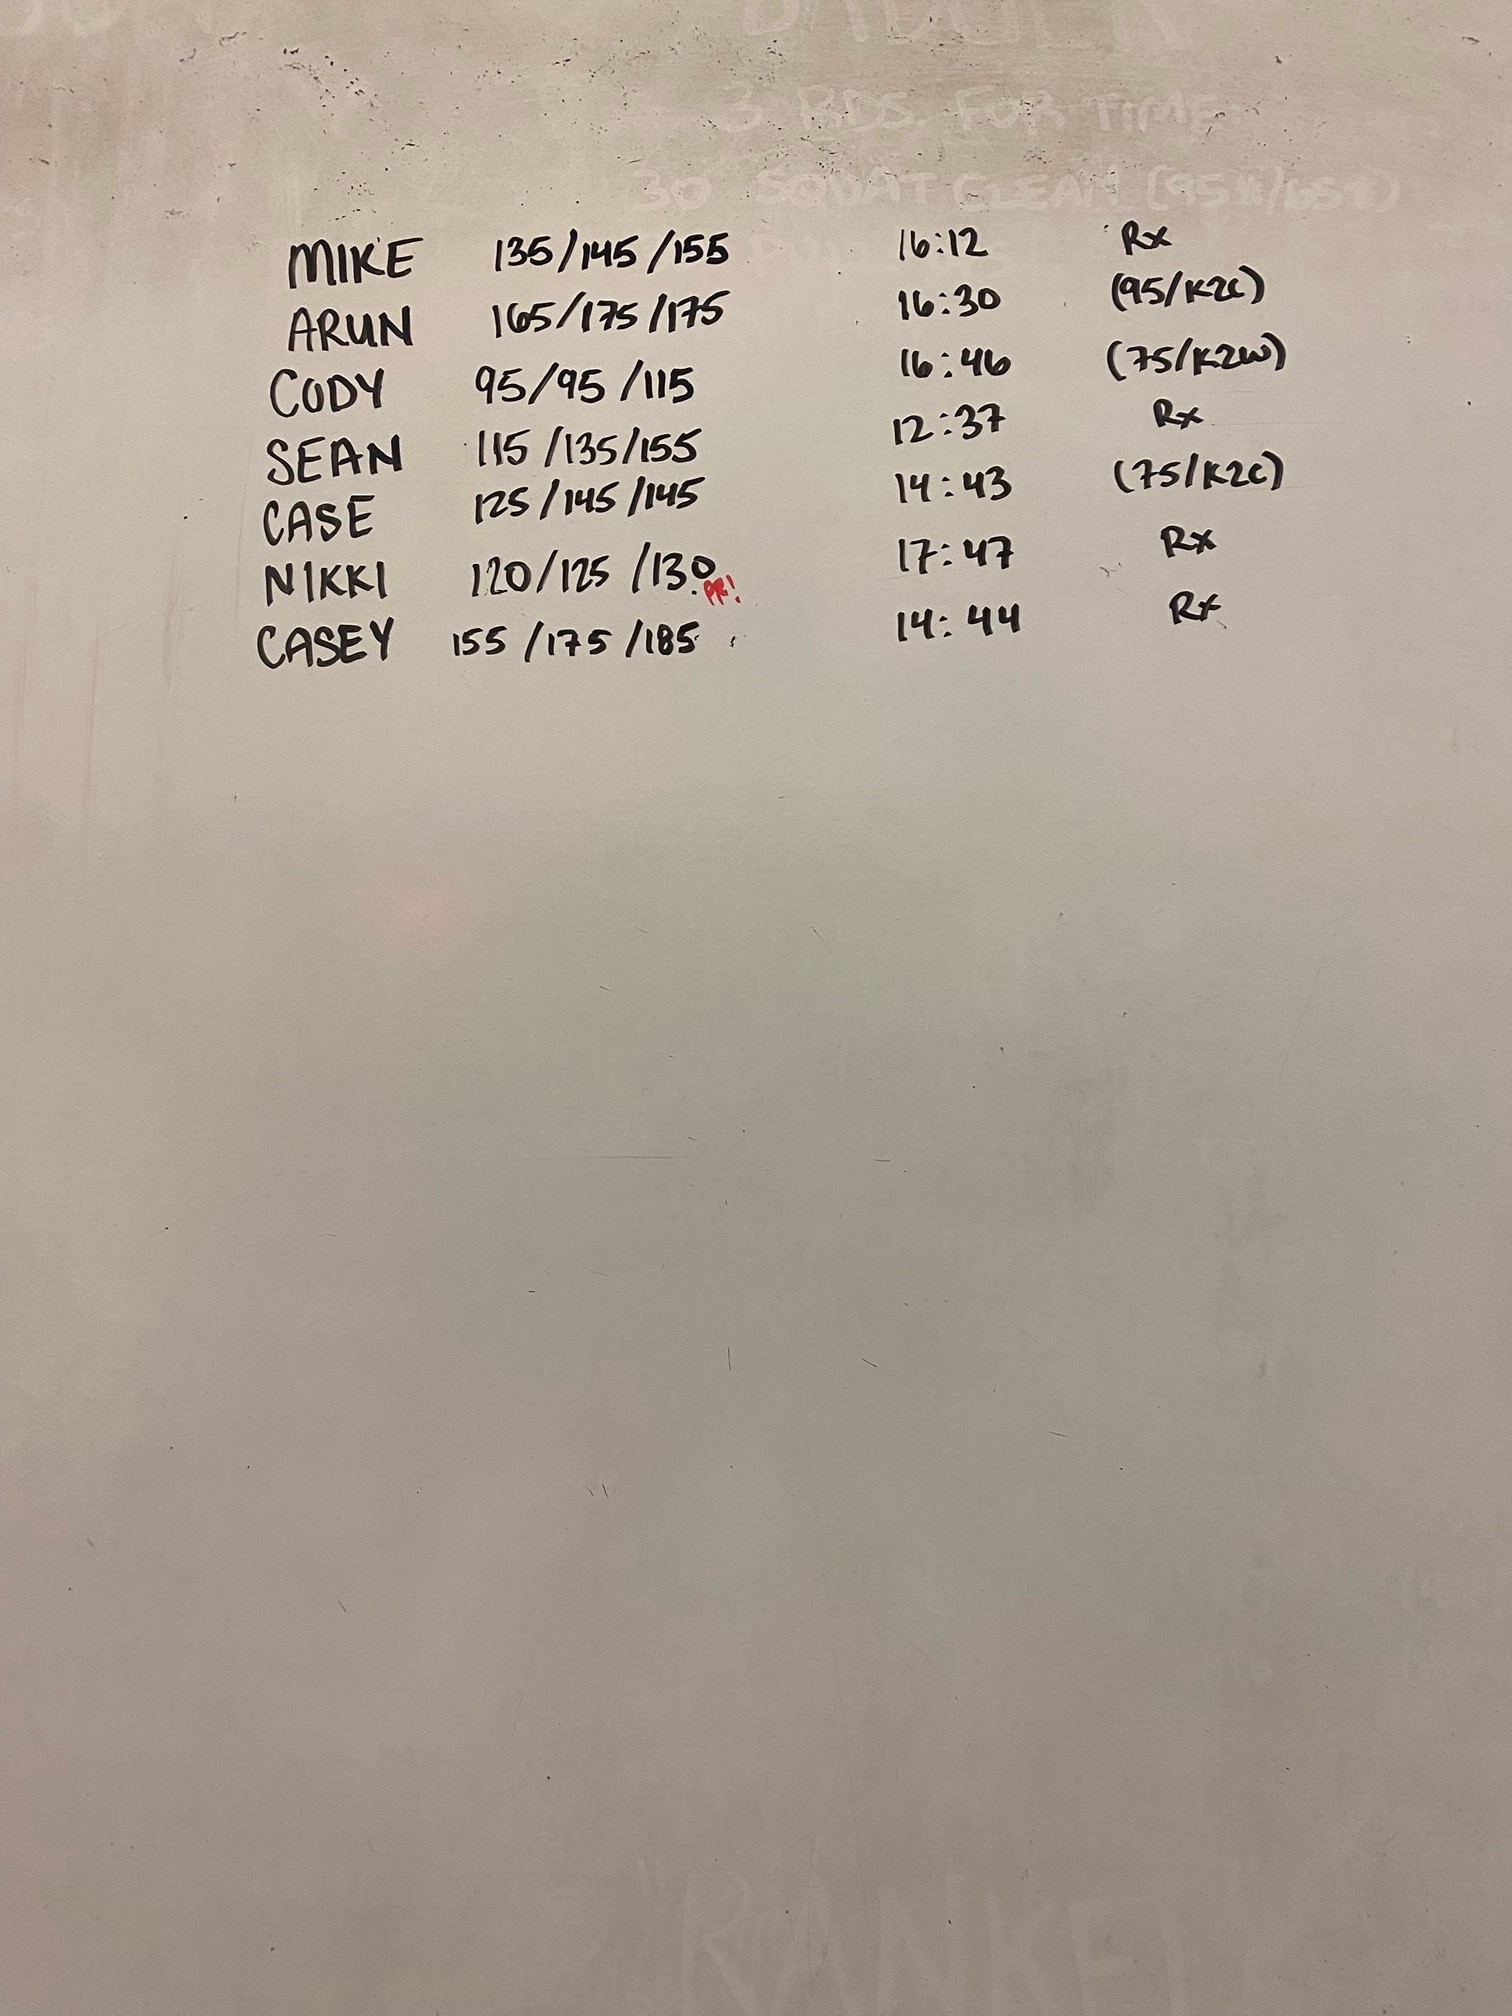 3 RDS. FOR TIME
30 SQUAT CLEAN (95#/65#)
MIKE 135/145/155 16:12 Rx
ARUN 165/175/175 16:30 (95/K2C)
CODY 95/95/115 16:46 (75/K2W)
SEAN 115/135/155 12:37 Rx
CASE 125/145/145 14:43 (75/K2C)
NIKKI 120/125/130 PR! 17:47 Rx
CASEY 155/175/185 14:44 Rx